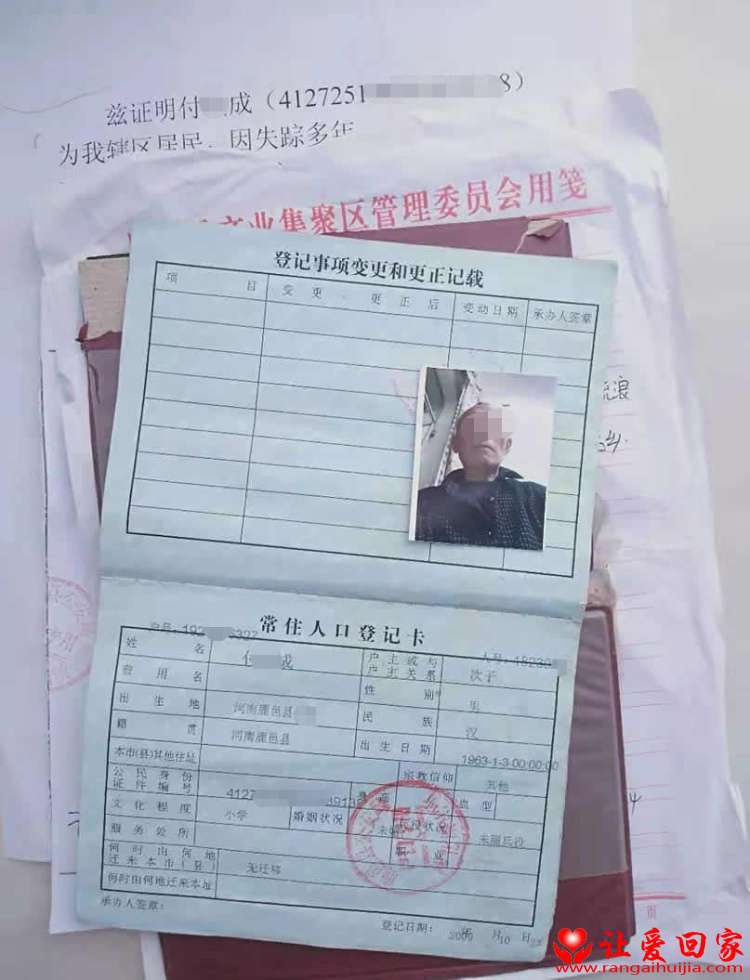 兹证明付 成（4127251 8）
为我辖区居民，因失踪多年
产业集聚区管理委员会用笺
登记事项变更和更正记载
项 目 变 更 、 更 正 后 变动日期 承办人签章
流浪
常住人口登记卡
户号：192 6327
姓 名 户主或与户主关系 次子
曾用名 性 别 男
出生地 河南鹿邑县 民 族 汉
籍 贯 河南鹿邑县 出生日期 1963-1-3 00:00:00
本市(县)其他住址 宗教信仰
公民身份证件编号 4127
文化程度 小学 婚姻状况 兵役状况 未服兵役
服务处所 职 业
何时由何地迁来本市(县) 无迁移
何时由何地迁来本址
承办人签章： 登记日期： 月10日
页
让爱回家
www.rangaihuijia.com